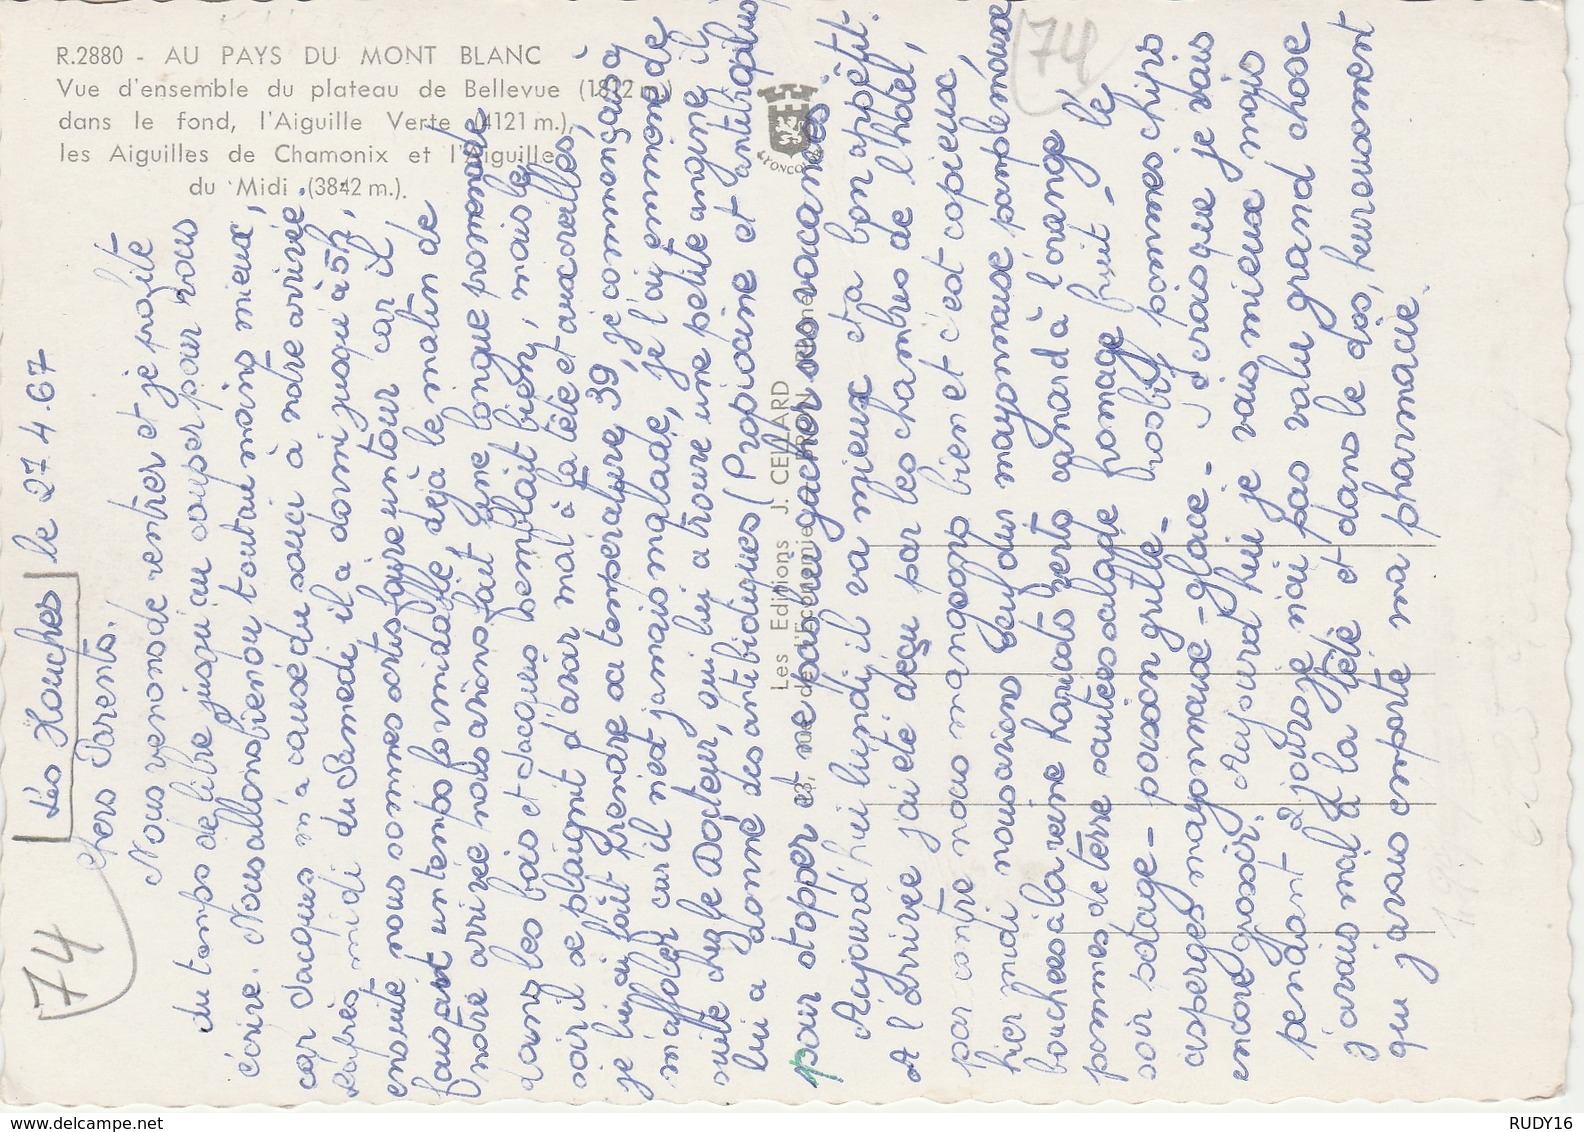 R.2880 - AU PAYS DU MONT BLANC
Vue d'ensemble du plateau de Bellevue (1812 m.)
dans le fond, l'Aiguille Verte (4121 m.),
les Aiguilles de Chamonix et l'Aiguille
du Midi (3842 m.).
74
74
Les Houches le 27.4.67
Chers Parents.
Nous venons de rentrer et je profite
du temps de libre jusqu'au souper pour vous
écrire. Nous allons bien ou tout au moins mieux,
car Jacques m'a causé du souci à notre arrivée
l'après midi du Samedi il a dormi jusqu'à 5h,
ensuite nous sommes sortis faire un tour car il
faisait un temps formidable, déjà le matin de
notre arrivée nous avions fait une longue promenade
dans les bois et Jacques semblait bien, mais le
soir il se plaignit d'avoir mal à la tête et aux oreilles,
je lui ai fait prendre sa température, 39, je commençais à
m'affoler car il n'est jamais malade, je l'ai emmené de
suite chez le Docteur, qui lui a trouvé une petite angine il
lui a donné des antibiotiques (Propiocine et antibiophilus)
pour stopper et ne pas lui gâcher ses vacances.
Aujourd'hui lundi il va mieux et a bon appétit.
A l'Arrivée j'ai été déçu par les chambres de l'hôtel,
par contre nous mangeons bien et c'est copieux,
hier midi nous avions oeufs durs mayonnaise pamplemousse
bouchées à la reine haricots verts canard à l'orange,
pommes de terre sautées salade fromage fruit - le
soir potage - poisson grillé - rosbif pommes chips
asperges mayonnaise - glace - Je crois que je vais
encore grossir. Aujourd'hui je vais mieux mais
pendant 2 jours je n'ai pas valu grand chose
j'avais mal à la tête et dans le dos, heureusement
que j'avais emporté ma pharmacie.
LYONCOLOR
Les Editions J. CELLARD
www.delcampe.net
RUDY16